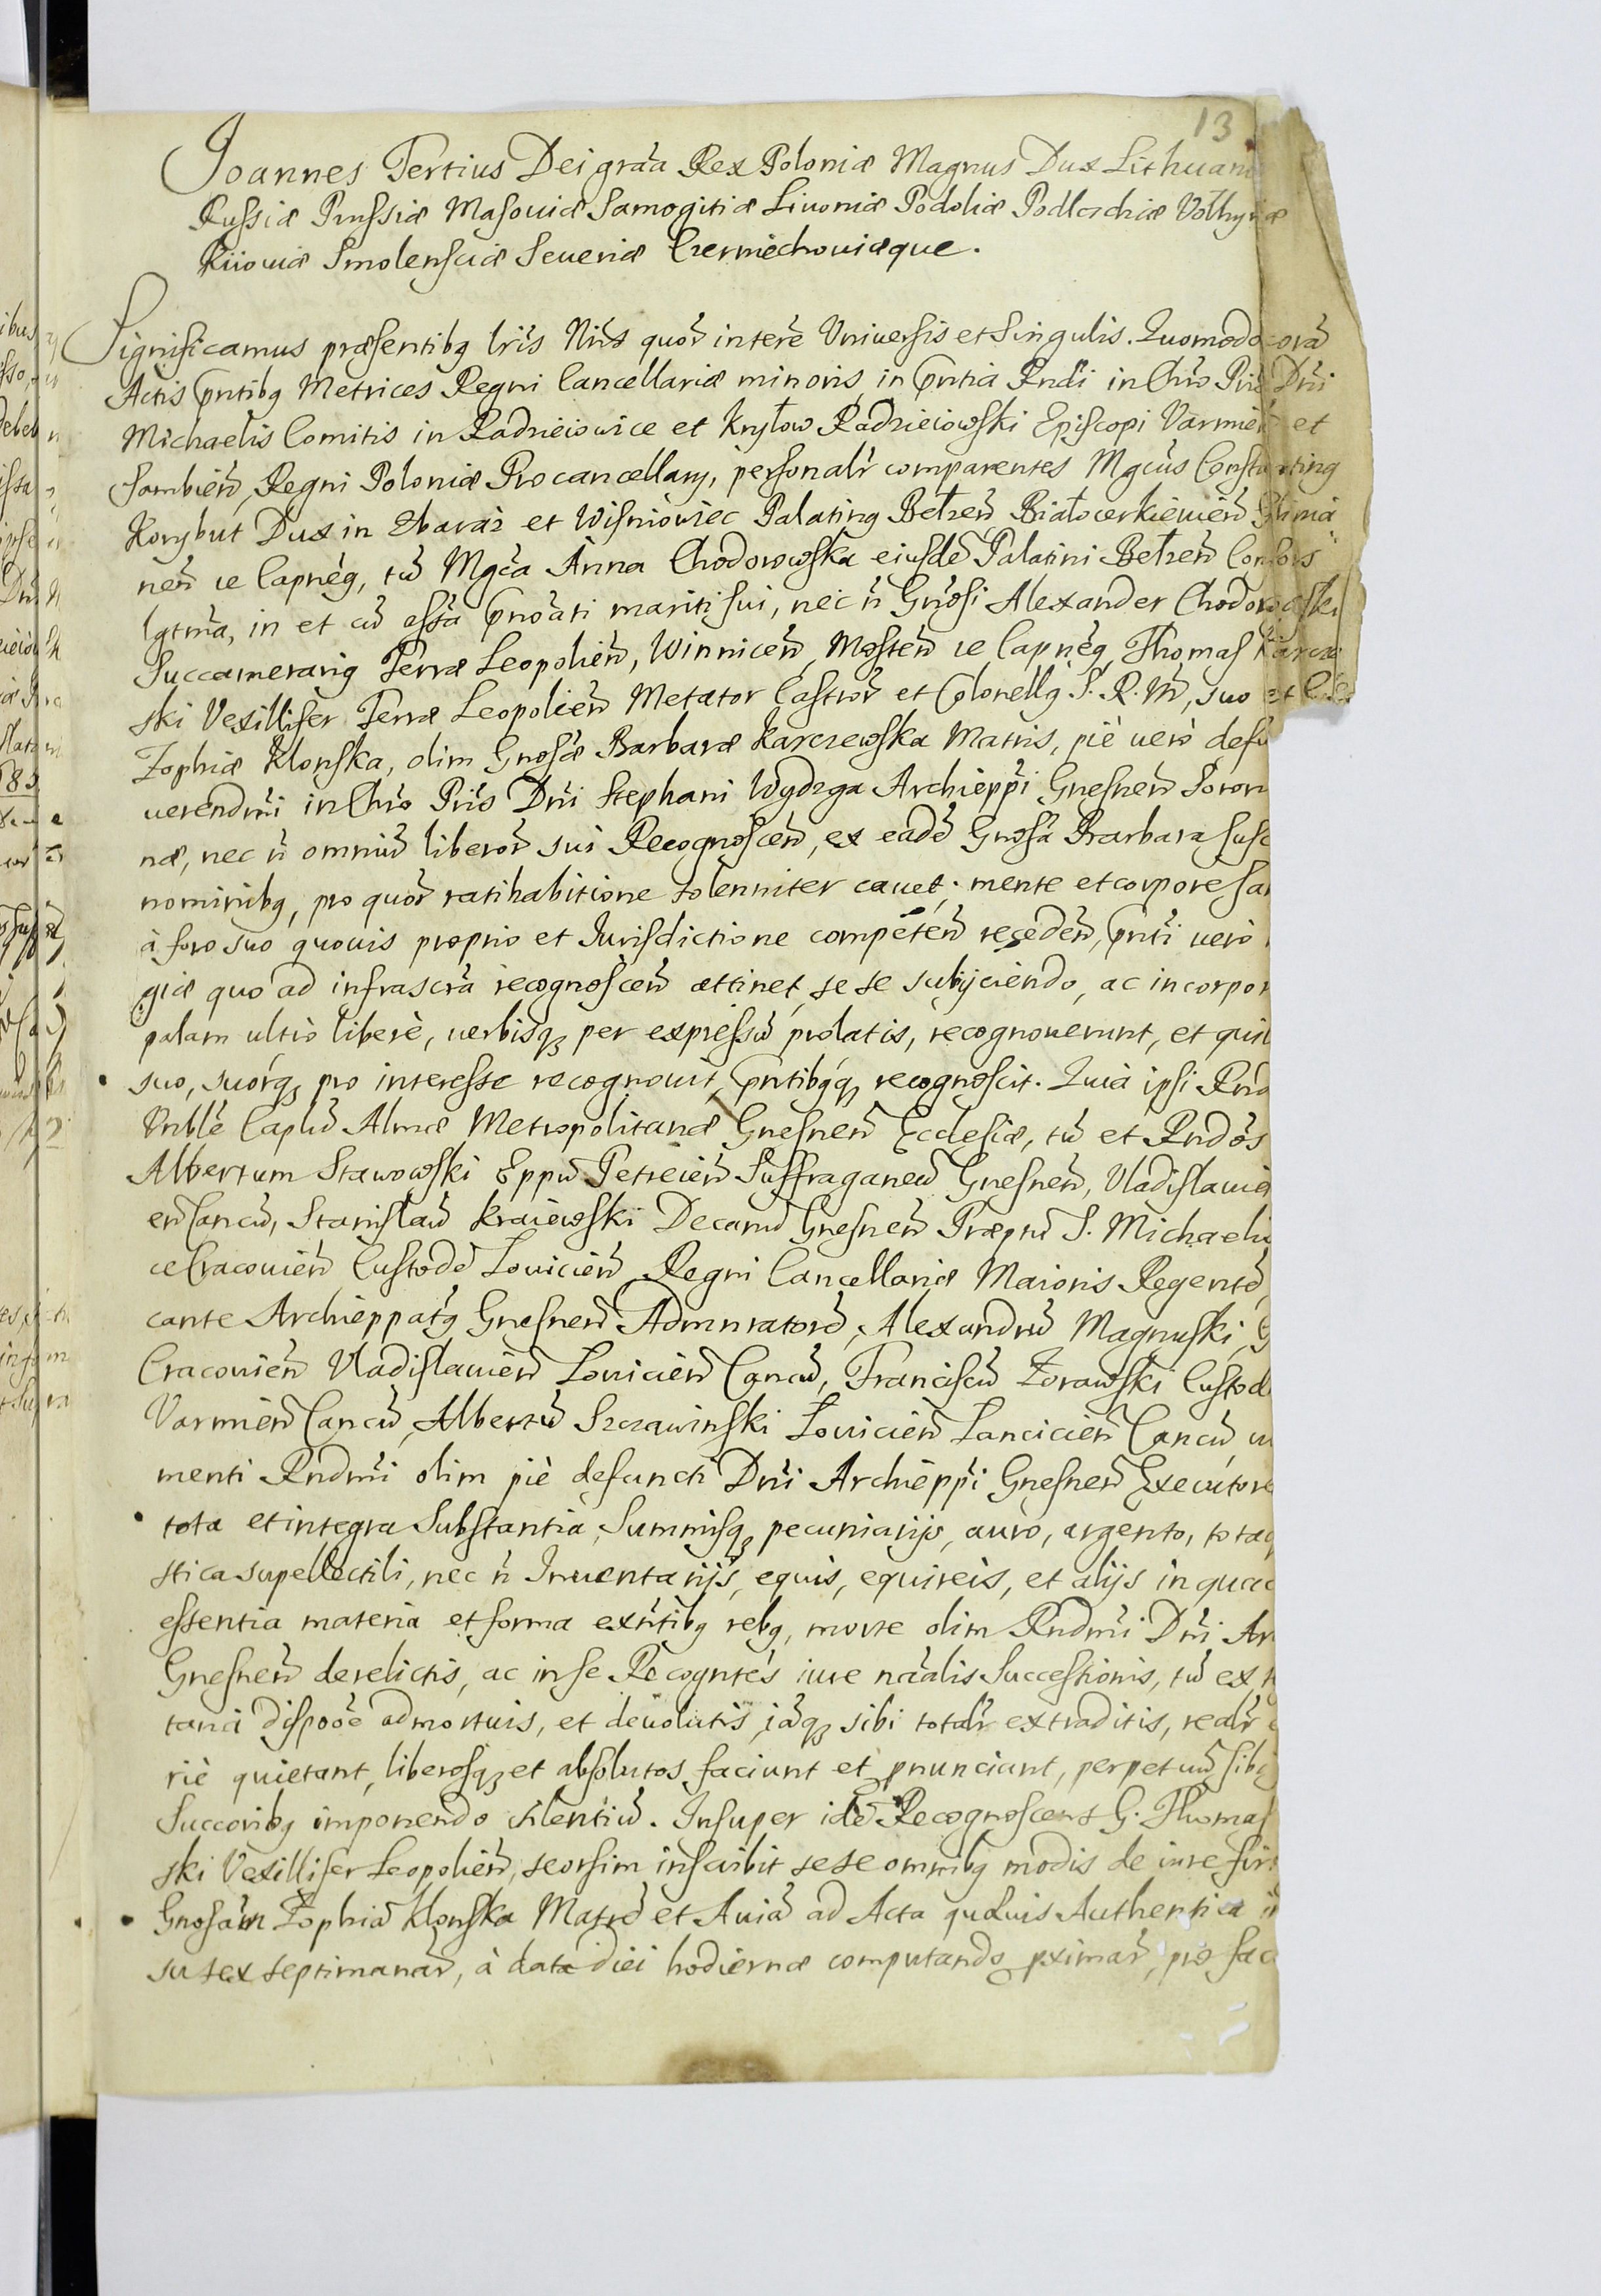 13
Joannes Tertius Dei gra͞a Rex Poloniæ Magnus Dux Lithuani
Russiæ Prussiæ Masouiæ Samogitiæ Liuoniæ Podoliæ Podlachiæ Volhyniæ
Kiiouiæ Smolensciæ Seueriæ Czerniechouiæque.
Significamus præsentibq l͞ris N͞ris quor͞ inter͞e Vniuersis et Singulis. Quomodo cora͞
Actis p͞ntibq Metrices Regni Cancellariæ minoris, in p͞ntia R͞ndi in Ch͞ro P͞ris D͞ni
Michaelis Comitis in Radzieiowice et Kryłow Radzieiowski Episcopi Varmien͞ et
Sambien͞, Regni Poloniæ Procancellarij, personal͞r comparentes Mgcus Constanting
Korybut Dux in Zbaraz et Wisniowiec Palating Bełzen͞ Białocerkieuien͞
nen͞ ie Capne͞g, tu͞ Mgca Anna Chodorowska eiusde͞ Palatini Bełzen͞ Consors
lgtma, in et cu͞ ass͞a p͞noati mariti sui, nec n͞ G͞nosi Alexander Chodorowski
Succamerarig Terræ Leopolien͞, Winnicen͞, Mosten͞ ie Capne͞g, Thomas Karcze
ski Vexillifer Terræ Leopolien͞ Metator Castror͞ et Colonellg S. R. M͞, suo et
Zophiæ Klonska, olim G͞nosæ Barbaræ Karczewska Matris, piè uerò defu
uerendm͞i in Ch͞ro P͞ris D͞ni Stephani Wydzga Archieppi Gnesnen͞ Soror
næ, nec n͞ omniu͞ liberor͞ sui Recognoscen͞, ex eade͞ G͞nosa Barbara susc
nominibq, pro quor͞ ratihabitione solenniter cauet; mente et corpore sa
à foro suo quouis proprio et Jurisdictione compete͞n͞ receden͞, p͞nti uerò
giæ quo ad infrascr͞a recognoscen͞ attinet, se se subijciendo, ac incorpor
palam ultrò liberè, uerbisq; per expressu͞ prolatis, recognouerunt, et qui
suo, suorq; pro interesse recognouit, p͞ntibqq; recognoscit. Quia ipsi R͞nd
Vnble͞ Caplu͞ Almæ Metropolitanæ Gnesnen͞ Ecclesiæ, tu͞ et R͞ndos
Albertum Stawowski Eppu͞ Petreien͞ Suffraganeu͞ Gnesnen͞, Vladislauie
en͞ Cancu͞, Stanislau͞ Kraiewski Decanu͞ Gnesnen͞ Præpu͞ S. Michaeli
ce Cracouien͞ Custode͞ Louicien͞ Regni Cancellariæ Maioris Regente͞,
cante Archieppatq Gnesnen͞ Admnratore͞, Alexandru͞ Magnuski, G
Cracouien͞ Vladislauien͞ Louicien͞ Cancu͞, Franciscu͞ Zorawski Custod
Varmien͞ Cancu͞, Albertu͞ Szczawinski Louicien͞ Lancicien͞ Cancu͞
menti R͞ndm͞i olim piè defuncti D͞ni Archieppi Gnesnen͞ Executore
tota et integra Substantia, Summisq; pecuniarijs, auro, argento, totaq
stica supellectili, nec n͞ Inuentarijs, equis, equireis, et alijs in quac
essentia materia et forma ex͞ntibq rebq, morte olim R͞ndm͞i D͞ni Ar
Gnesnen͞ derelictis, ac in se Recogntes iure na͞alis Successionis, tu͞ ex
tanci dispo͞oe admortuis, et deuolutis, ia͞q; sibi total͞r extraditis, real͞r
riè quietant, liberosq; et absolutos faciunt et pnunciant, perpetuu͞ sibi
Succoribq imponendo silentiu͞. Insuper ide͞ Recognoscens G. Thomas
ski Vexillifer Leopolien͞, seorsim inscribit sese omnibq modis de iure fir
G͞nosam Zophia͞ Klonska Matre͞ et Auia͞ ad Acta quæuis Authentica
su sex septimanar͞, à data diei hodiernæ computando pximar͞, pro fac